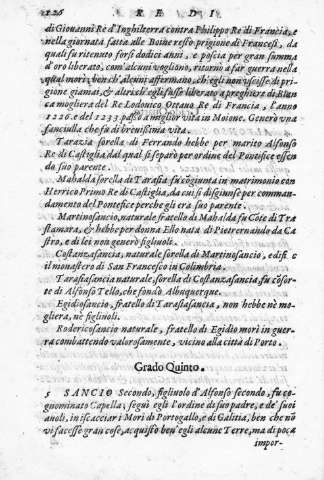 126 R E D I
di Giouanni Re d'Inghilterra contra Philippo Re di Francia, e
nella giornata fatta alle Boine restò prigione di Francesi, da
quali fu ritenuto forsi dodici anni, e poscia per gran summa
d'oro liberato, come alcuni vogliano, ritornò a far guerra nella
qual morì; benche alcuni affirmano, ch'egli non vscisse di pri-
gione giamai, & altri ch'egli fusse liberato a preghiere di Blan
ca mogliera del Re Lodouico Ottauo Re di Francia, l'anno
1226. e del 1233. passò a miglior vita in Moione. Generò vna
fanciulla che fu di breuissima vita.
Tarazia sorella di Ferrando hebbe per marito Alfonso
Re di Castiglia, dal qual si separò per ordine del Pontefice essen
do suo parente.
Mahalda sorella di Tarasia fu cōgiunta in matrimonio con
Herrico Primo Re di Castiglia, da cui si disgiunse per comman-
damento del Pontefice perche gli era suo parente.
Martinosancio, naturale fratello di Mahalda fu Cōte di Tra
stamara, & hebbe per donna Ello nata di Pietrernando da Ca
stro, e di lei non generò figliuoli.
Costanzasancia, naturale sorella di Martinosancio, edificò
il monastero di San Francesco in Colimbria.
Tarasiasancia naturale sorella di Costanzasancia fu cōsor-
te di Alfonso Tello, che fondò Albuquerque.
Egidiosancio, fratello di Tarasiasancia, non hebbe nè mo-
gliera, nè figliuoli.
Rodericosancio naturale, fratello di Egidio morì in guer-
ra combattendo valorosamente, vicino alla città di Porto.
Grado Quinto.
5 SANCIO Secondo, figliuolo d'Alfonso secondo, fu co-
gnominato Capella; seguì egli l'ordine di suo padre, e de' suoi
auoli, in iscacciar i Mori di Portogallo, e di Galitia, ben che nō
vi facesse gran cose, acquistò ben' egli alcune Terre, ma di poca
impor-